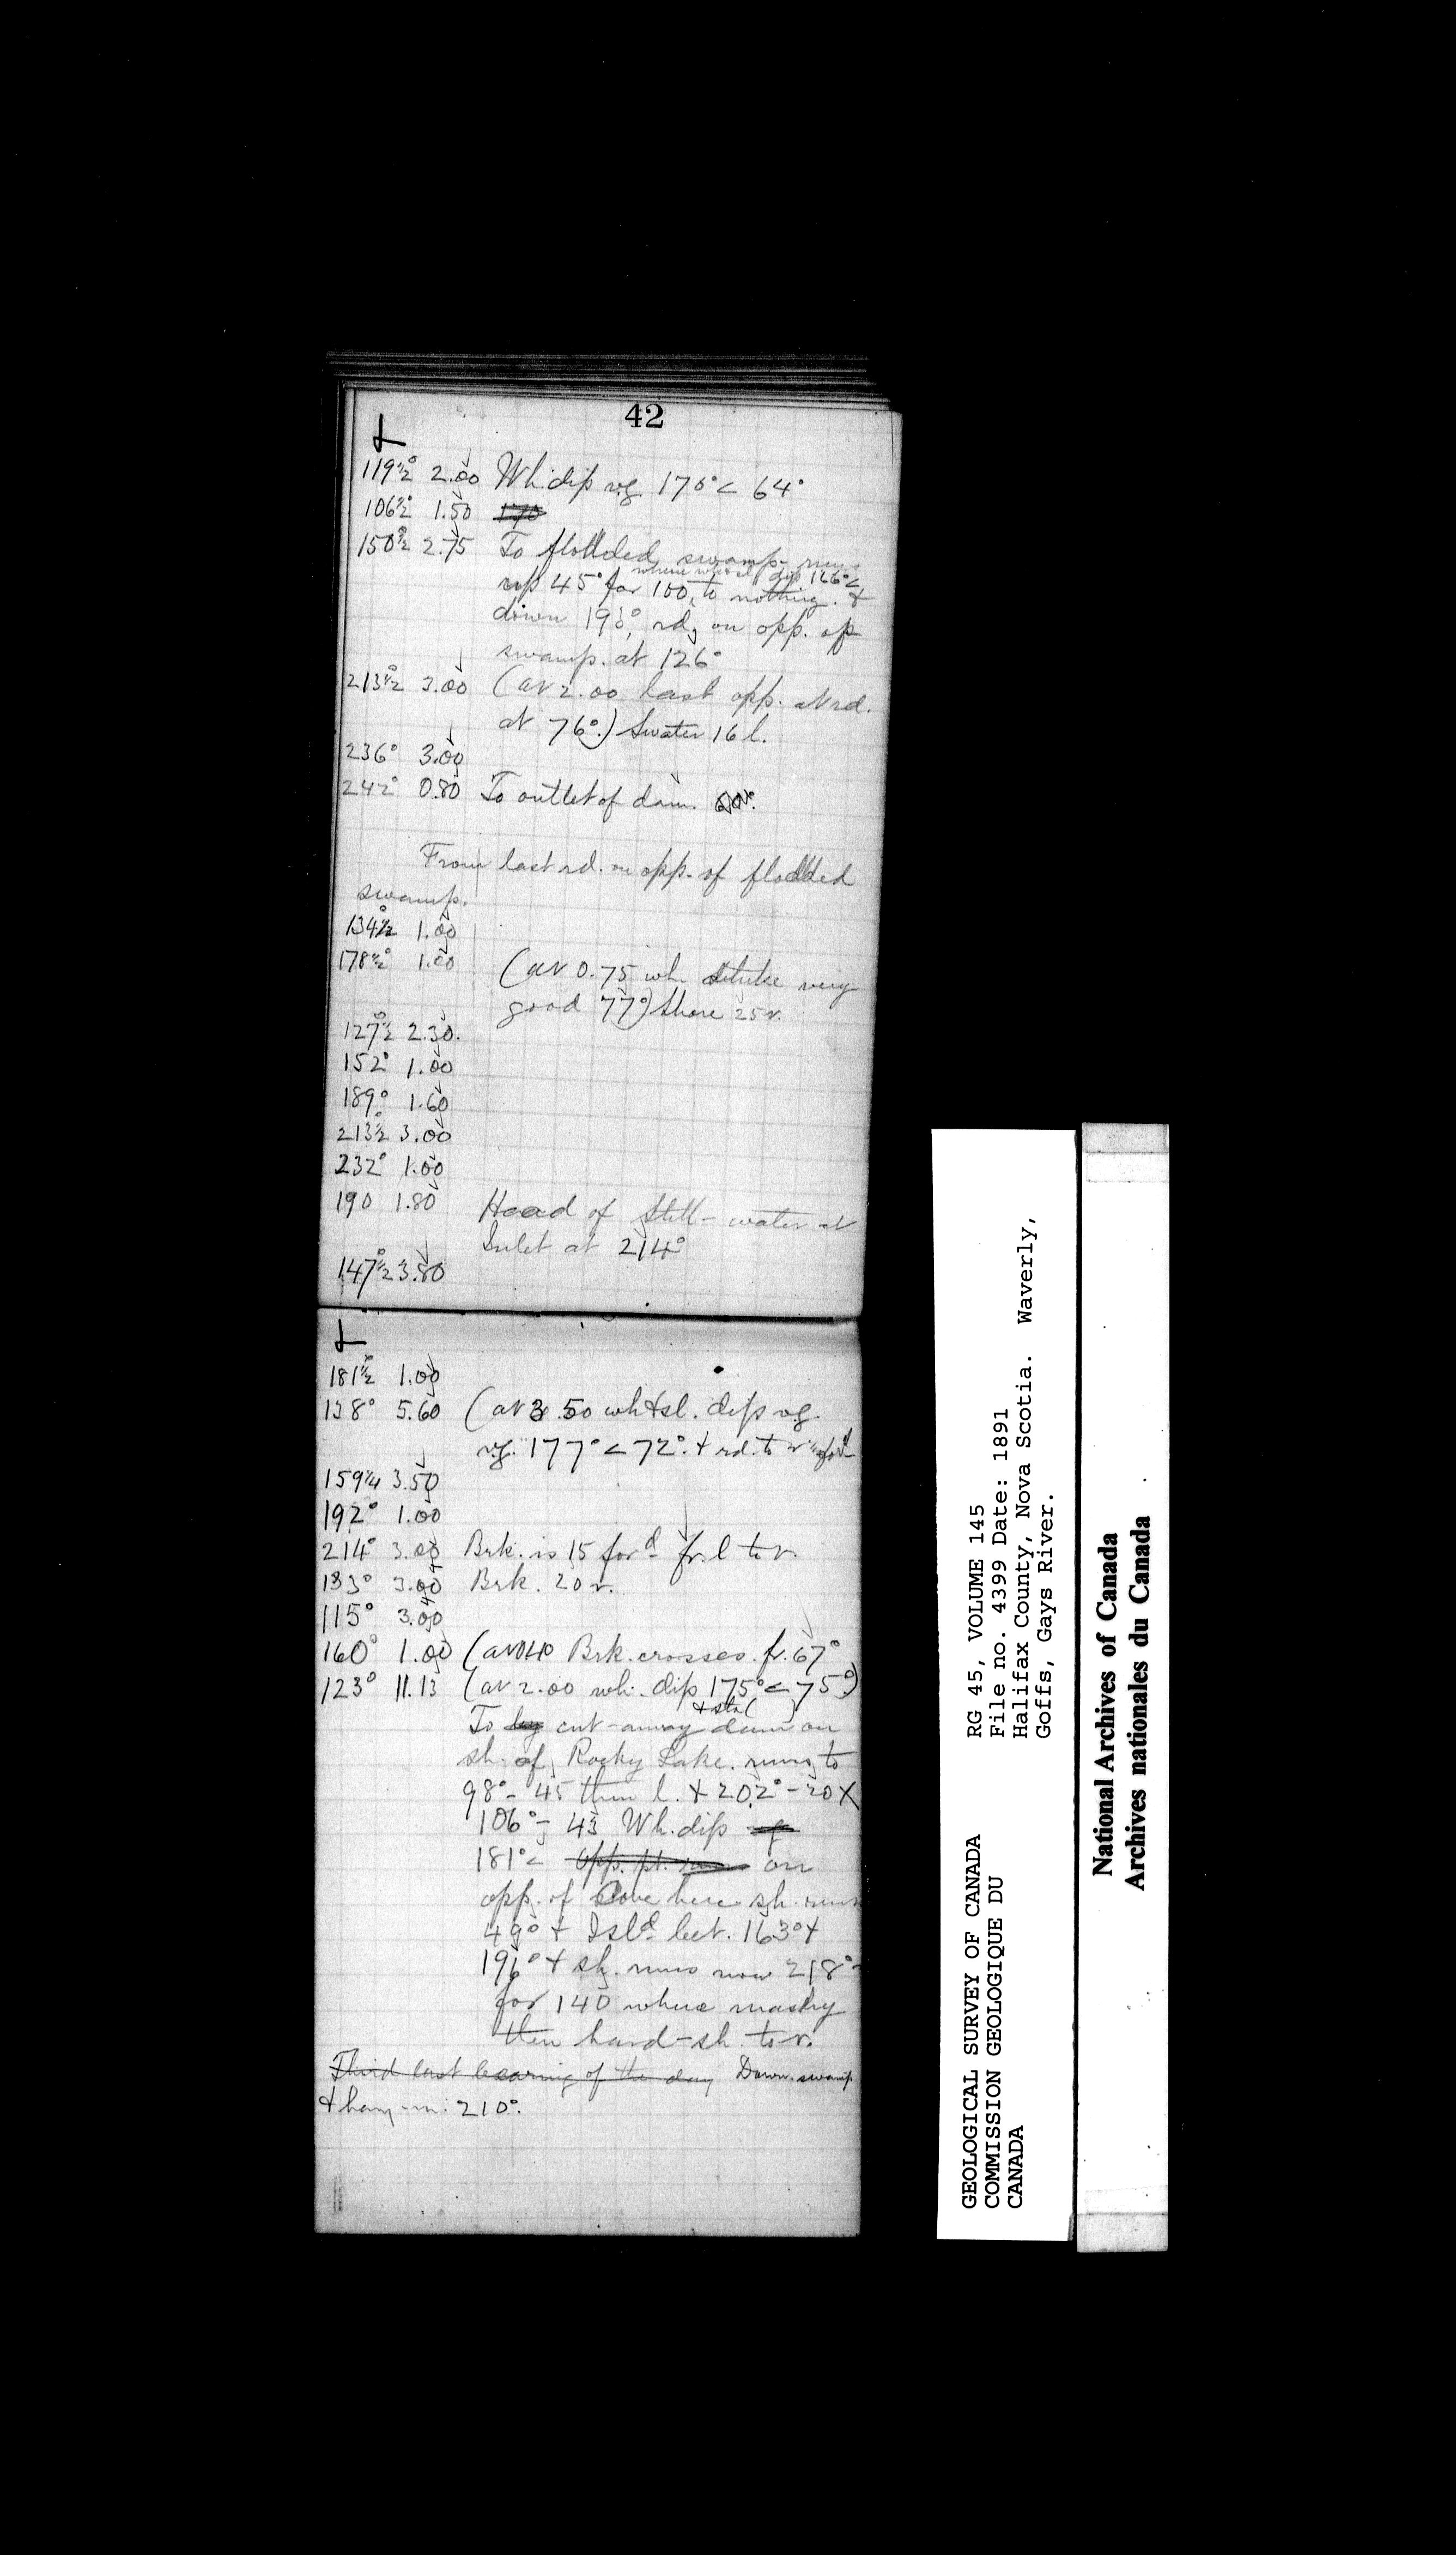 42
119½° 2.00 Wh. dip v.g. 170° < 64°
106½° 1.50 170
150½° 2.75 To flodded swamp. runs
where wh & sl dip 166° <
up 45° for 100, to nothing. &
down 193°, rd, on opp. of
swamp. at 126°
213½° 3.00 (at 2.00 last opp. at rd.
at 76°.) Swater 16 l.
236° 3.00
242° 0.80 To outlet of dam.
From last rd. on opp. of flodded
swamp.
134½° 1.00
178½° 1.00 (at 0.75 wh. strike very
good 77°) Shore 25 r.
127½° 2.30.
152° 1.00
189° 1.60
213½° 3.00
232° 1.00
190 1.80 Head of Still-water at
Inlet at 214°
147½° 3.80
181½° 1.00
138° 5.60 (at 3.50 wh & sl. dips v.g.
v.g. 177° < 72°. & rd. to r
159¼ 3.50
192° 1.00
214° 3.00 Brk. is 15 for'd fr. l to r.
183° 3.00 Brk. 20 r.
115° 3.00
160° 1.00 (at 040 Brk. crosses. fr. 67°
123° 11.13 (at 2.00 wh. dip 175° < 75°)
To cut-away dam on
sh. of Rocky Lake. runs to
98° - 45 then l. & 202° - 20 X
106° - 43 Wh. dip
181° < Opp. pt. runs on
opp. of Cove here sh. runs
49° & Isld. bet. 163° &
196° & sh. runs now 218°
for 140 where mashy
then hard-sh. to r.
Third last bearing of the day Down swamp
210°.
GEOLOGICAL SURVEY OF CANADA
COMMISSION GEOLOGIQUE DU
CANADA
RG 45, VOLUME 145
File no. 4399 Date: 1891
Halifax County, Nova Scotia. Waverly,
Goffs, Gays River.
National Archives of Canada
Archives nationales du Canada